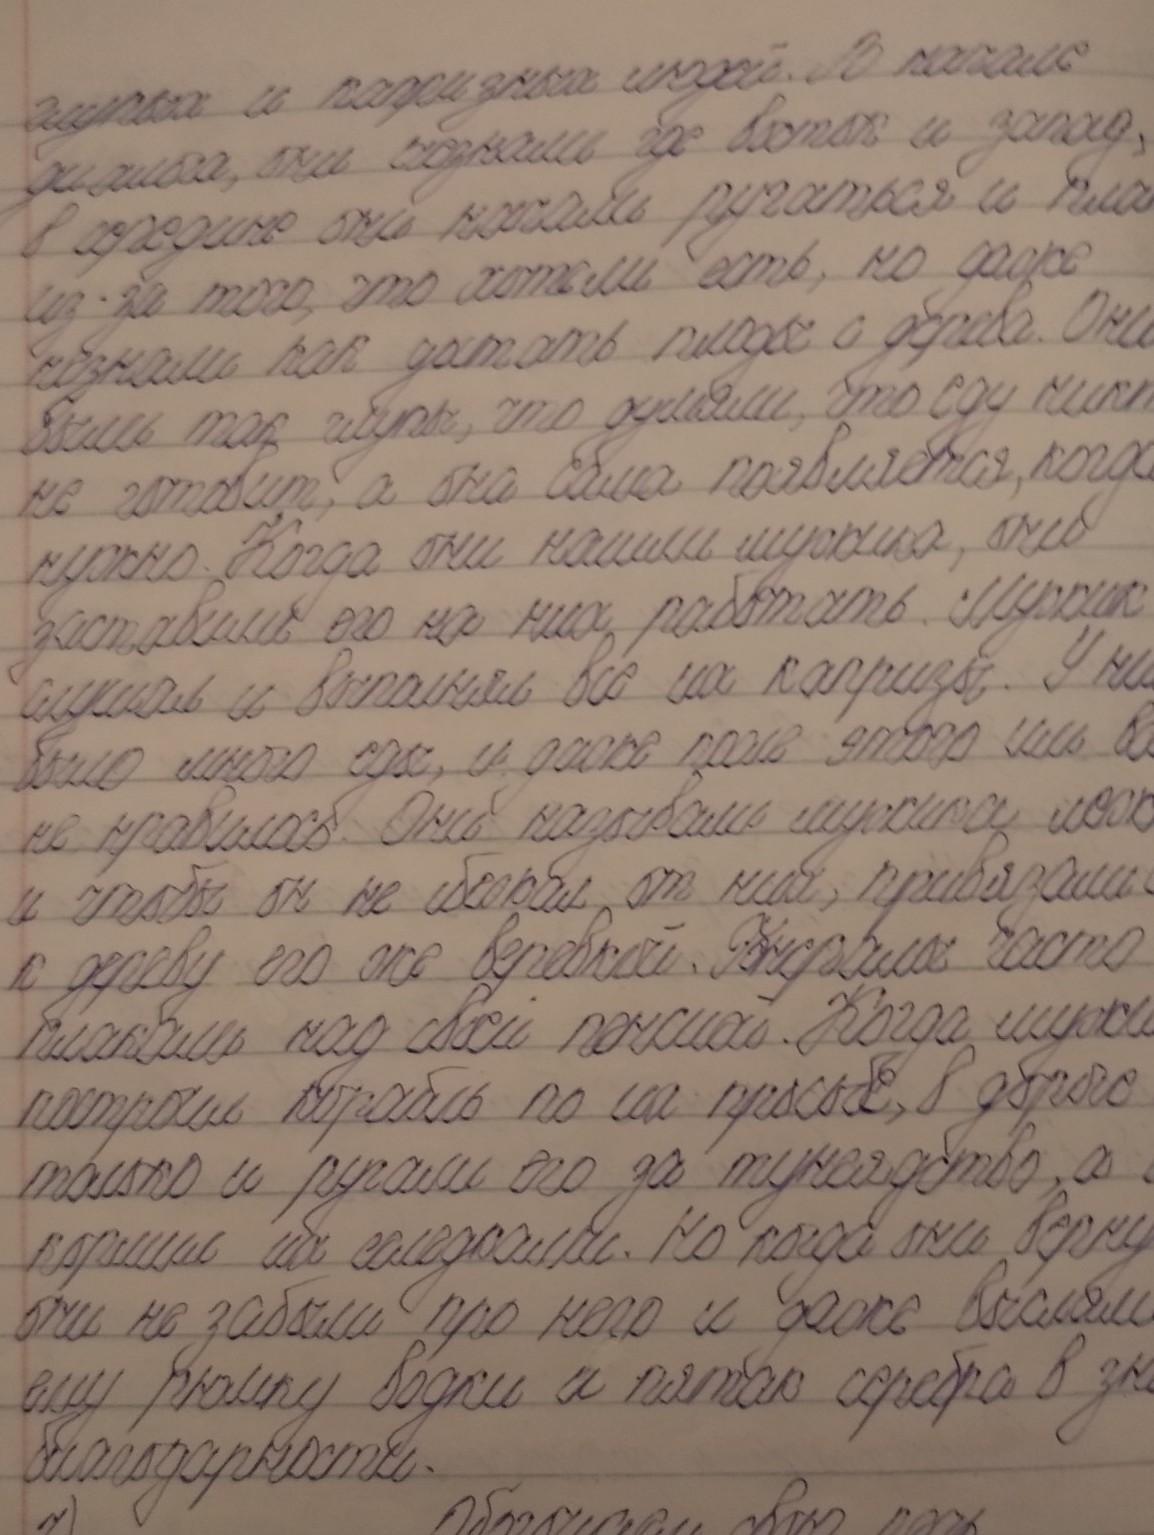 глупых и капризных людей. В начале
они незнали где восток и запад,
в середине они начали ругаться и пла
из-за того, что хотели есть, но даже
незнали как достать плоды с дерева. Они
были так глупы, что думали, что еду никт
не готовит, а она сама появляется, когда
нужно. Когда они нашли мужика, они
заставили его на них работать. Мужик
слушал и выполнял все их капризы. У ни
было много еды, и даже после этого им вс
не нравилось. Они называли мужика
и чтобы он не убежал от них, привязали
к дереву его же веревкой. Генералы часто
плакали над своей пенсией. Когда мужи
построил корабль по их просьбе, в дороге
только и ругали его за тунеядство, а
кормил их селедками. Но когда они верну
они не забыли про него и даже выслали
ему рюмку водки и пятак серебра в зна
благодарности.